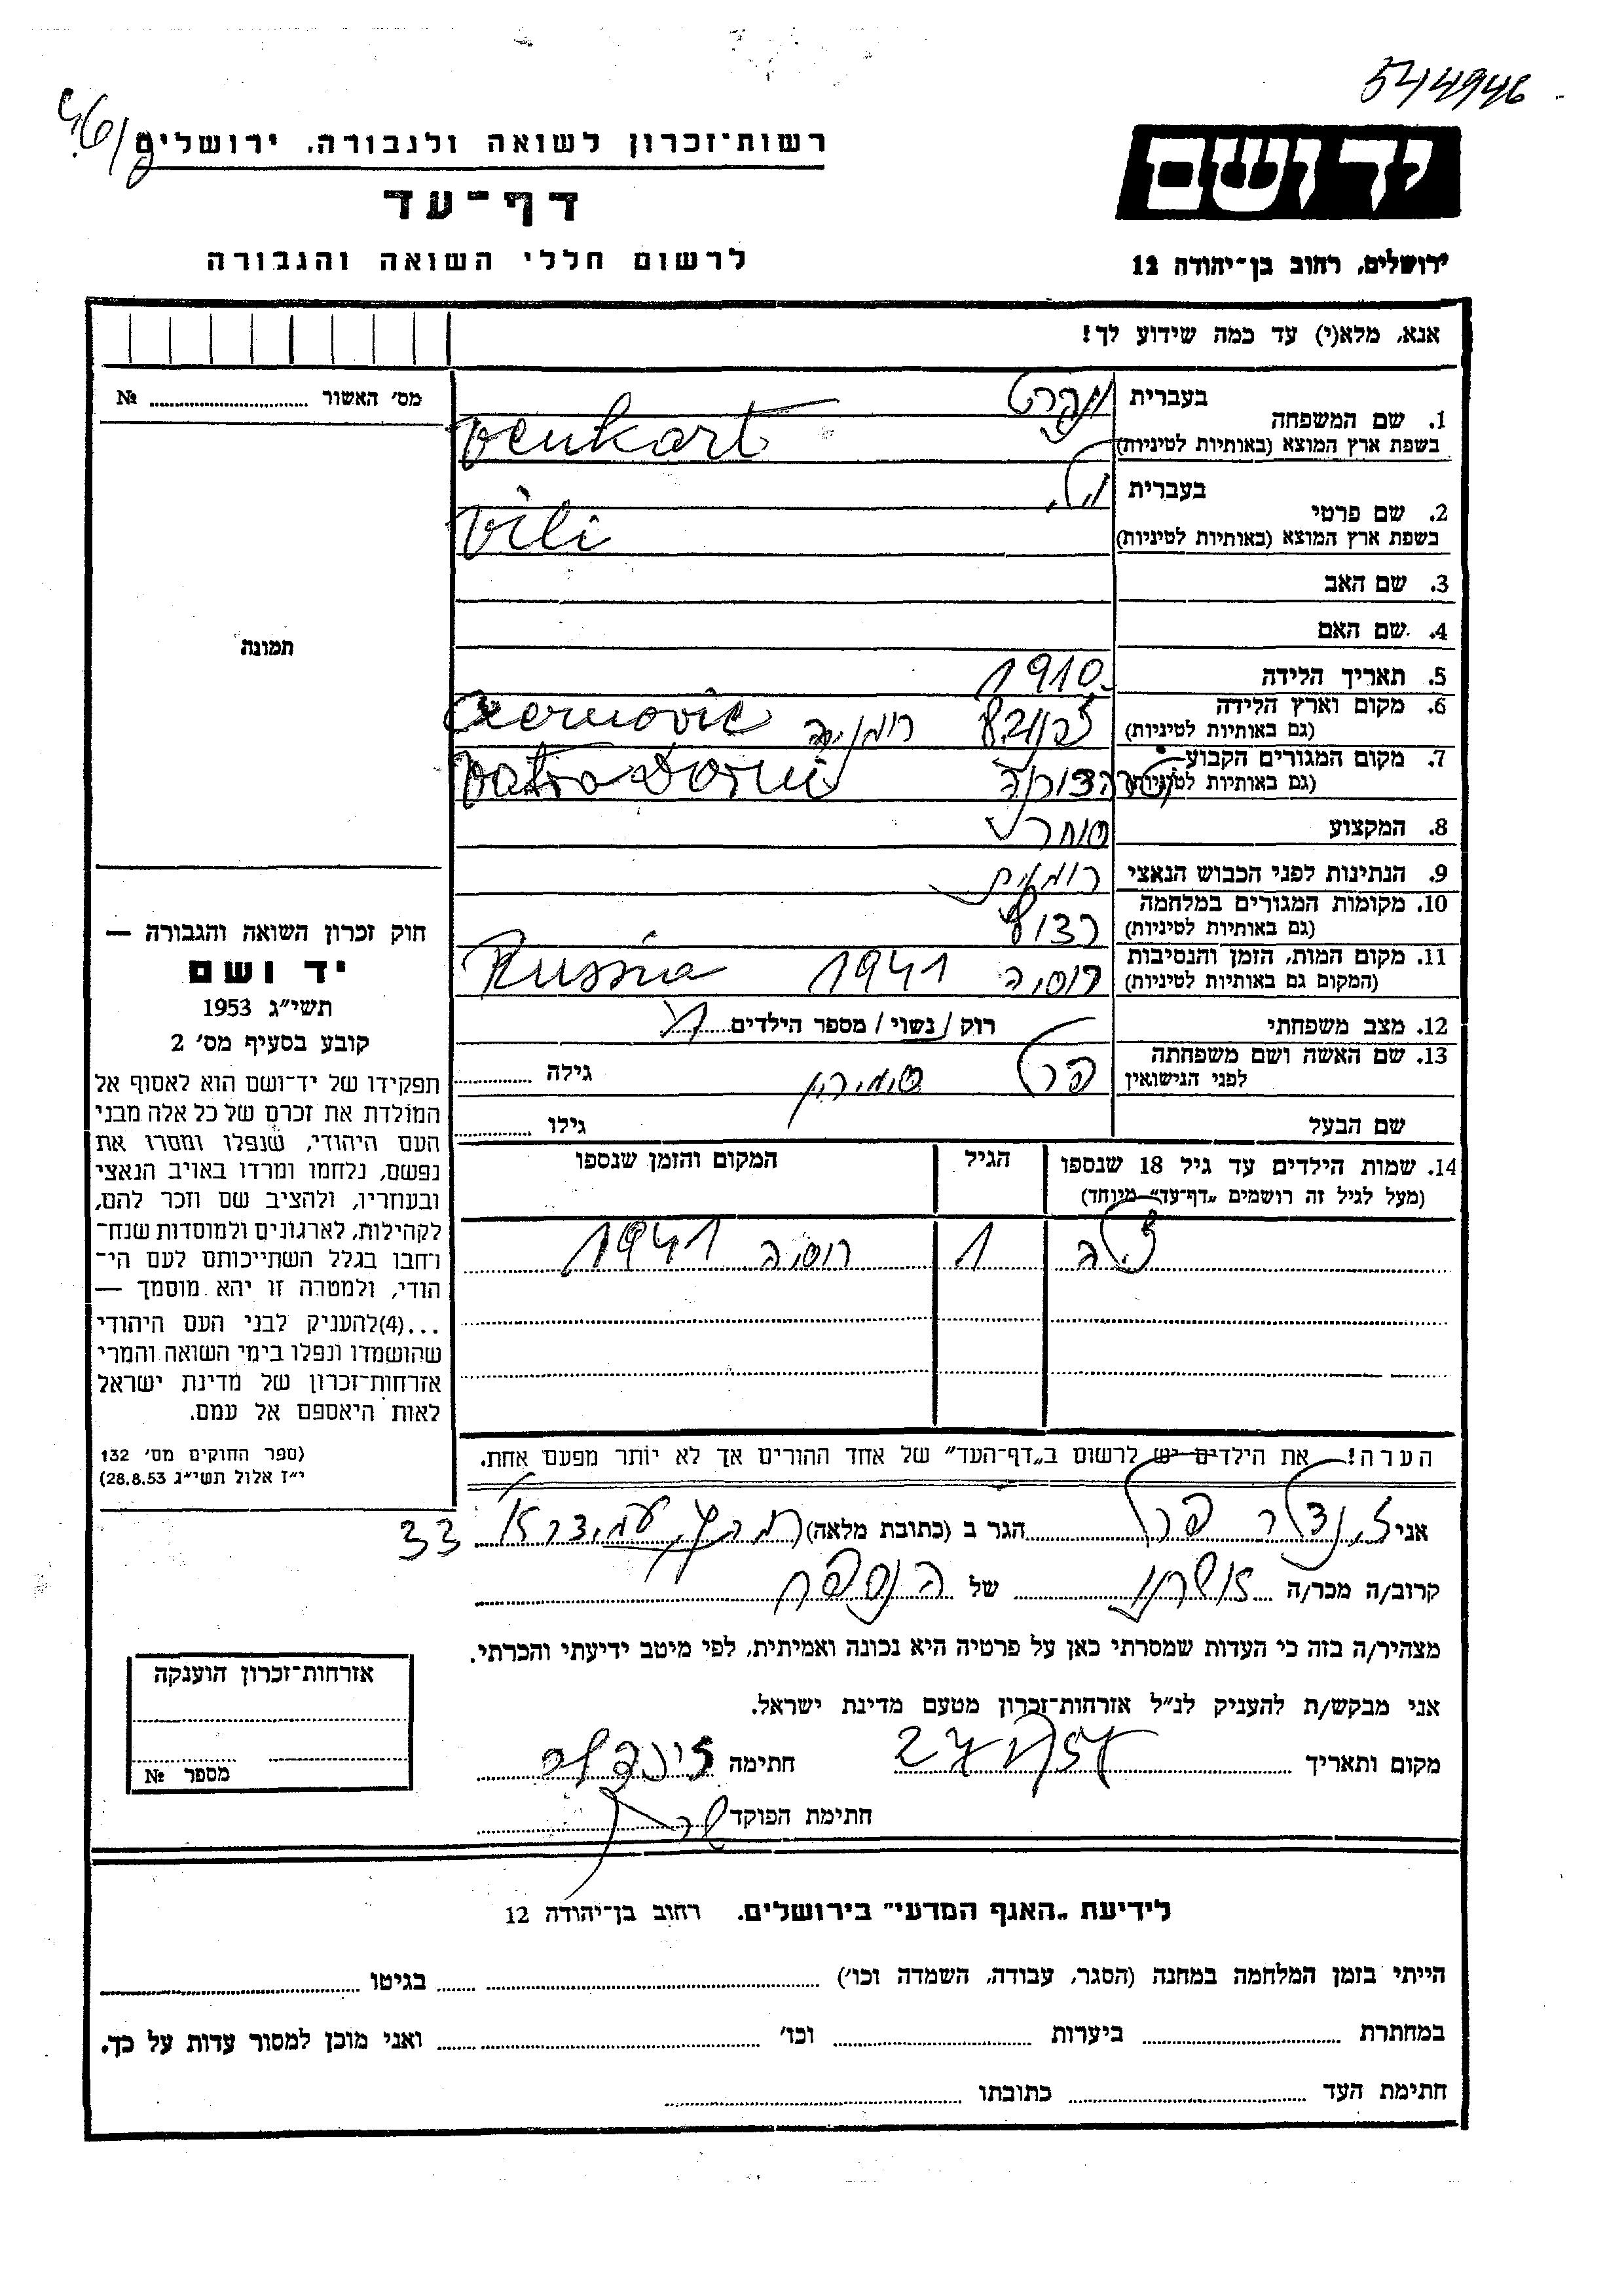 544946
רשות־זכרון לשואה ולגבורה, ירושלים
דף־עד
לרשום חללי השואה והגבורה
יד ושם
ירושלים, רחוב בן־יהודה 12
אנא, מלא(י) עד כמה שידוע לך!
מס׳ האשור № ........
1. שם המשפחה
בעברית
בשפת ארץ המוצא (באותיות לטיניות) Venkart
2. שם פרטי
בעברית וילי
בשפת ארץ המוצא (באותיות לטיניות) Vili
3. שם האב
4. שם האם
5. תאריך הלידה 1910
6. מקום וארץ הלידה
(גם באותיות לטיניות) רומניה Czernovic
7. מקום המגורים הקבוע
(גם באותיות לטיניות) Vatra Dorni
8. המקצוע סוחר
9. הנתינות לפני הכבוש הנאצי רומנית
10. מקומות המגורים במלחמה
(גם באותיות לטיניות)
11. מקום המות, הזמן והנסיבות
(המקום גם באותיות לטיניות) רוסיה 1941 Russia
12. מצב משפחתי רוק / נשוי / מספר הילדים 1
13. שם האשה ושם משפחתה
לפני הנישואין פרל גילה ........
שם הבעל גילו ........
14. שמות הילדים עד גיל 18 שנספו
(מעל לגיל זה רושמים „דף־עד״ מיוחד)
הגיל
המקום והזמן שנספו
1 רוסיה 1941
הערה! את הילדים יש לרשום ב„דף־העד״ של אחד ההורים אך לא יותר מפעם אחת.
אני פרל הגר ב (כתובת מלאה) עמידר 33
קרוב/ה מכר/ה של הנספה
מצהיר/ה בזה כי העדות שמסרתי כאן על פרטיה היא נכונה ואמיתית, לפי מיטב ידיעתי והכרתי.
אני מבקש/ת להעניק לנ״ל אזרחות־זכרון מטעם מדינת ישראל.
מקום ותאריך חתימה
חתימת הפוקד
תמונה
חוק זכרון השואה והגבורה —
יד ושם
תשי״ג 1953
קובע בסעיף מס׳ 2
תפקידו של יד־ושם הוא לאסוף אל
המולדת את זכרם של כל אלה מבני
העם היהודי, שנפלו ומסרו את
נפשם, נלחמו ומרדו באויב הנאצי
ובעוזריו, ולהציב שם וזכר להם,
לקהילות, לארגונים ולמוסדות שנח־
רחבו בגלל השתייכותם לעם הי־
הודי, ולמטרה זו יהא מוסמך —
...(4)להעניק לבני העם היהודי
שהושמדו ונפלו בימי השואה והמרי
אזרחות־זכרון של מדינת ישראל
לאות היאספם אל עמם.
(ספר החוקים מס׳ 132
י״ז אלול תשי״ג 28.8.53)
אזרחות־זכרון הוענקה
מספר №
לידיעת „האגף המדעי״ בירושלים. רחוב בן־יהודה 12
הייתי בזמן המלחמה במחנה (הסגר, עבודה, השמדה וכו׳) ........ בגיטו ........
במחתרת ........ ביערות ........ וכו׳ ........ ואני מוכן למסור עדות על כך.
חתימת העד ........ כתובתו ........